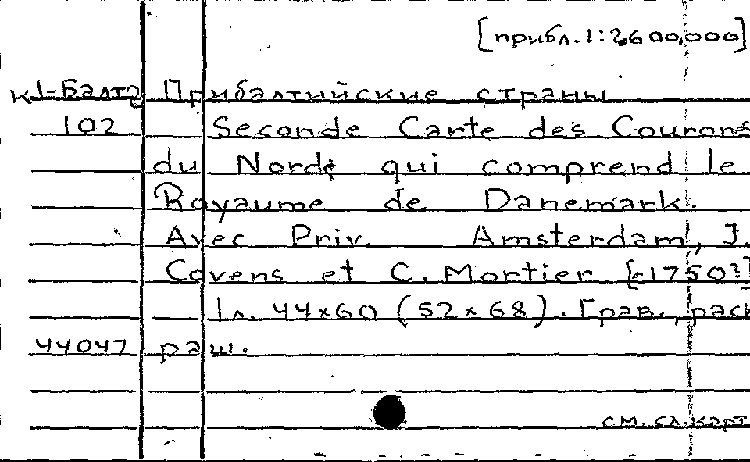 [прибл. 1:2,600,000]
К1-Балт2 Прибалтийские страны
102 Seconde Carte des Courons
du Norde qui comprend le
Royaume de Danemark.
Avec Priv. Amsterdam, J.
Covens et C. Mortier [c1750?]
1 л. 44×60 (52×68). Грав., раск
44047 раш.
см. сл. карт